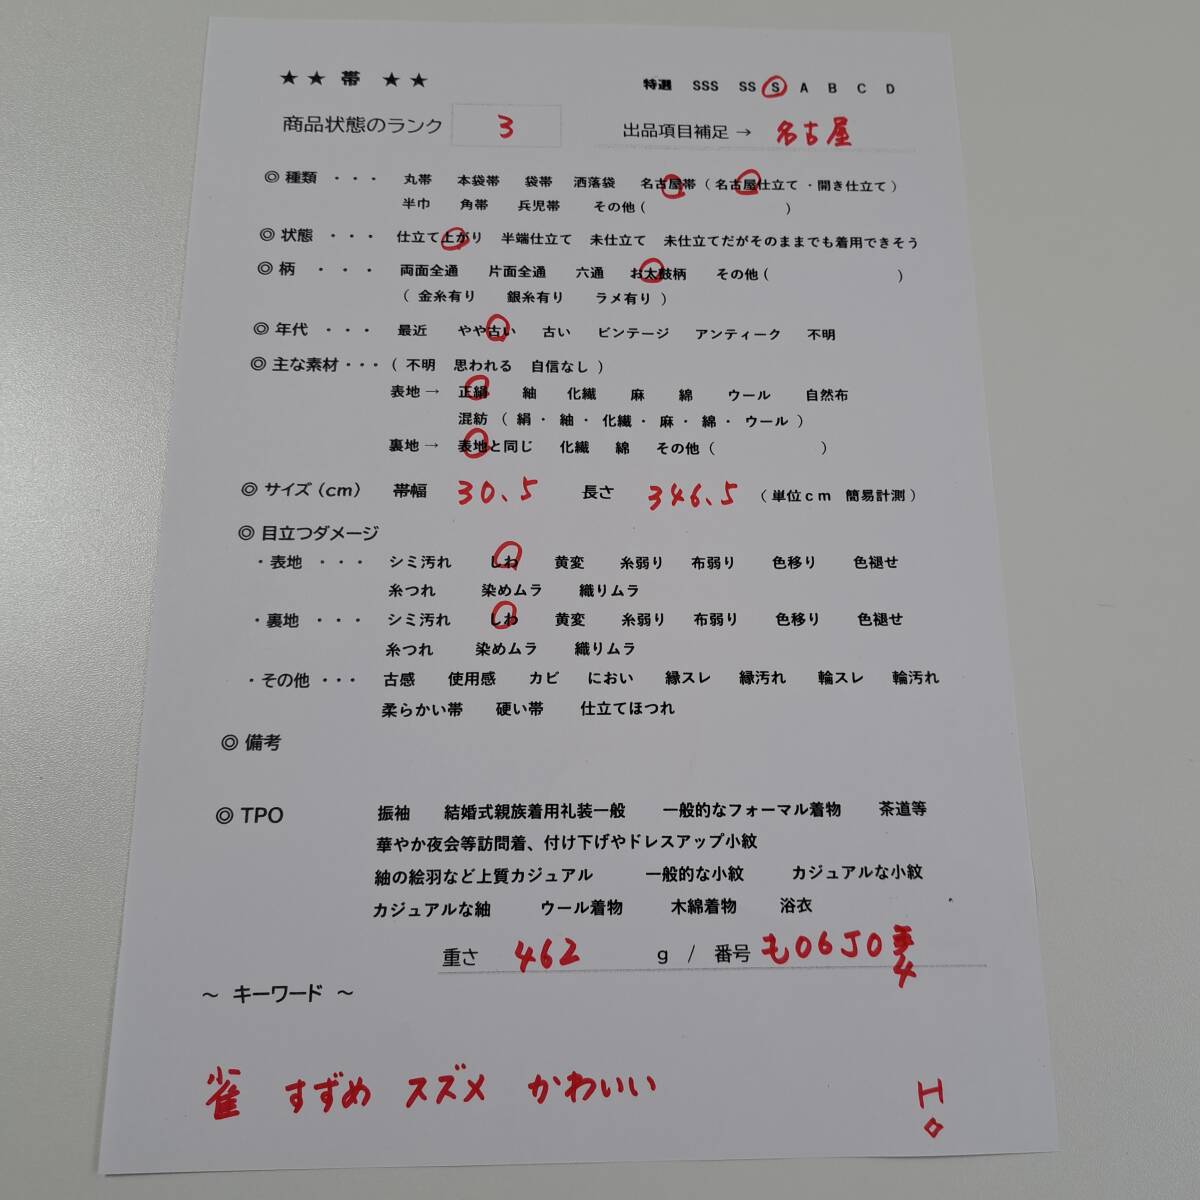 ★ ★ 帯 ★ ★ 特選 SSS SS S A B C D
商品状態のランク 3 出品項目補足 → 名古屋
◎ 種類 ・・・ 丸帯 本袋帯 袋帯 洒落袋 名古屋帯 ( 名古屋仕立て ・開き仕立て )
半巾 角帯 兵児帯 その他 ( )
◎ 状態 ・・・ 仕立て上がり 半端仕立て 未仕立て 未仕立てだがそのままでも着用できそう
◎ 柄 ・・・ 両面全通 片面全通 六通 お太鼓柄 その他 ( )
( 金糸有り 銀糸有り ラメ有り )
◎ 年代 ・・・ 最近 やや古い 古い ビンテージ アンティーク 不明
◎ 主な素材・・・ ( 不明 思われる 自信なし )
表地 → 正絹 紬 化繊 麻 綿 ウール 自然布
混紡 ( 絹・ 紬・ 化繊・ 麻・ 綿・ ウール )
裏地 → 表地と同じ 化繊 綿 その他 ( )
◎ サイズ (cm) 帯幅 30.5 長さ 346.5 ( 単位cm 簡易計測 )
◎ 目立つダメージ
・表地 ・・・ シミ汚れ しわ 黄変 糸弱り 布弱り 色移り 色褪せ
糸つれ 染めムラ 織りムラ
・裏地 ・・・ シミ汚れ しわ 黄変 糸弱り 布弱り 色移り 色褪せ
糸つれ 染めムラ 織りムラ
・その他 ・・・ 古感 使用感 カビ におい 縁スレ 縁汚れ 輪スレ 輪汚れ
柔らかい帯 硬い帯 仕立てほつれ
◎ 備考
◎ TPO 振袖 結婚式親族着用礼装一般 一般的なフォーマル着物 茶道等
華やか夜会等訪問着、付け下げやドレスアップ小紋
紬の絵羽など上質カジュアル 一般的な小紋 カジュアルな小紋
カジュアルな紬 ウール着物 木綿着物 浴衣
重さ 462 g / 番号 も06J0 4
～ キーワード ～
雀 すずめ スズメ かわいい